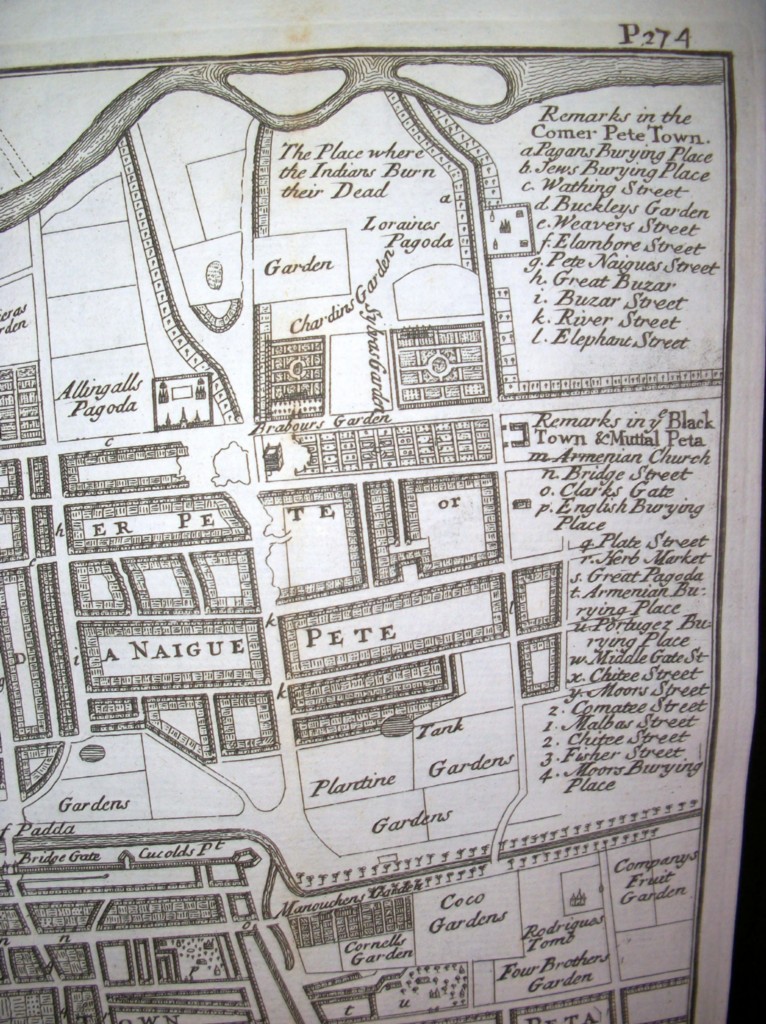 P.274
Remarks in the
Comer Pete Town.
a Pagans Burying Place
b. Jews Burying Place
c. Wathing Street
d. Buckleys Garden
e. Weavers Street
f. Elambore Street
g. Pete Naigues Street
h. Great Buzar
i. Buzar Street
k. River Street
l. Elephant Street
The Place where
the Indians Burn
their Dead
a
Loraines
Pagoda
Garden
Chardins Garden
Allingalls
Pagoda
Arabours Garden
Remarks in yᵉ Black
Town & Muttal Peta
m Armenian Church
n. Bridge Street
o. Clarks Gate
p. English Burying
Place
q Plate Street
r. Herb Market
s. Great Pagoda
t. Armenian Bu-
rying Place
u Portugez Bu-
rying Place
w. Middle Gate St
x. Chitee Street
y. Moors Street
z. Comatee Street
1. Malbas Street
2. Chitee Street
3. Fisher Street
4. Moors Burying
Place
c
h
ER PE
TE or
k
l
D
i
A NAIGUE
PETE
k
Tank
Plantine
Gardens
Gardens
Gardens
f Padda
Bridge Gate
Cucolds Pt
Manouchens Garden
Coco
Gardens
Cornells
Garden
Rodrigues
Tomb
Companys
Fruit
Garden
Four Brothers
Garden
n
n
o
p
t
u
TOWN
PETA